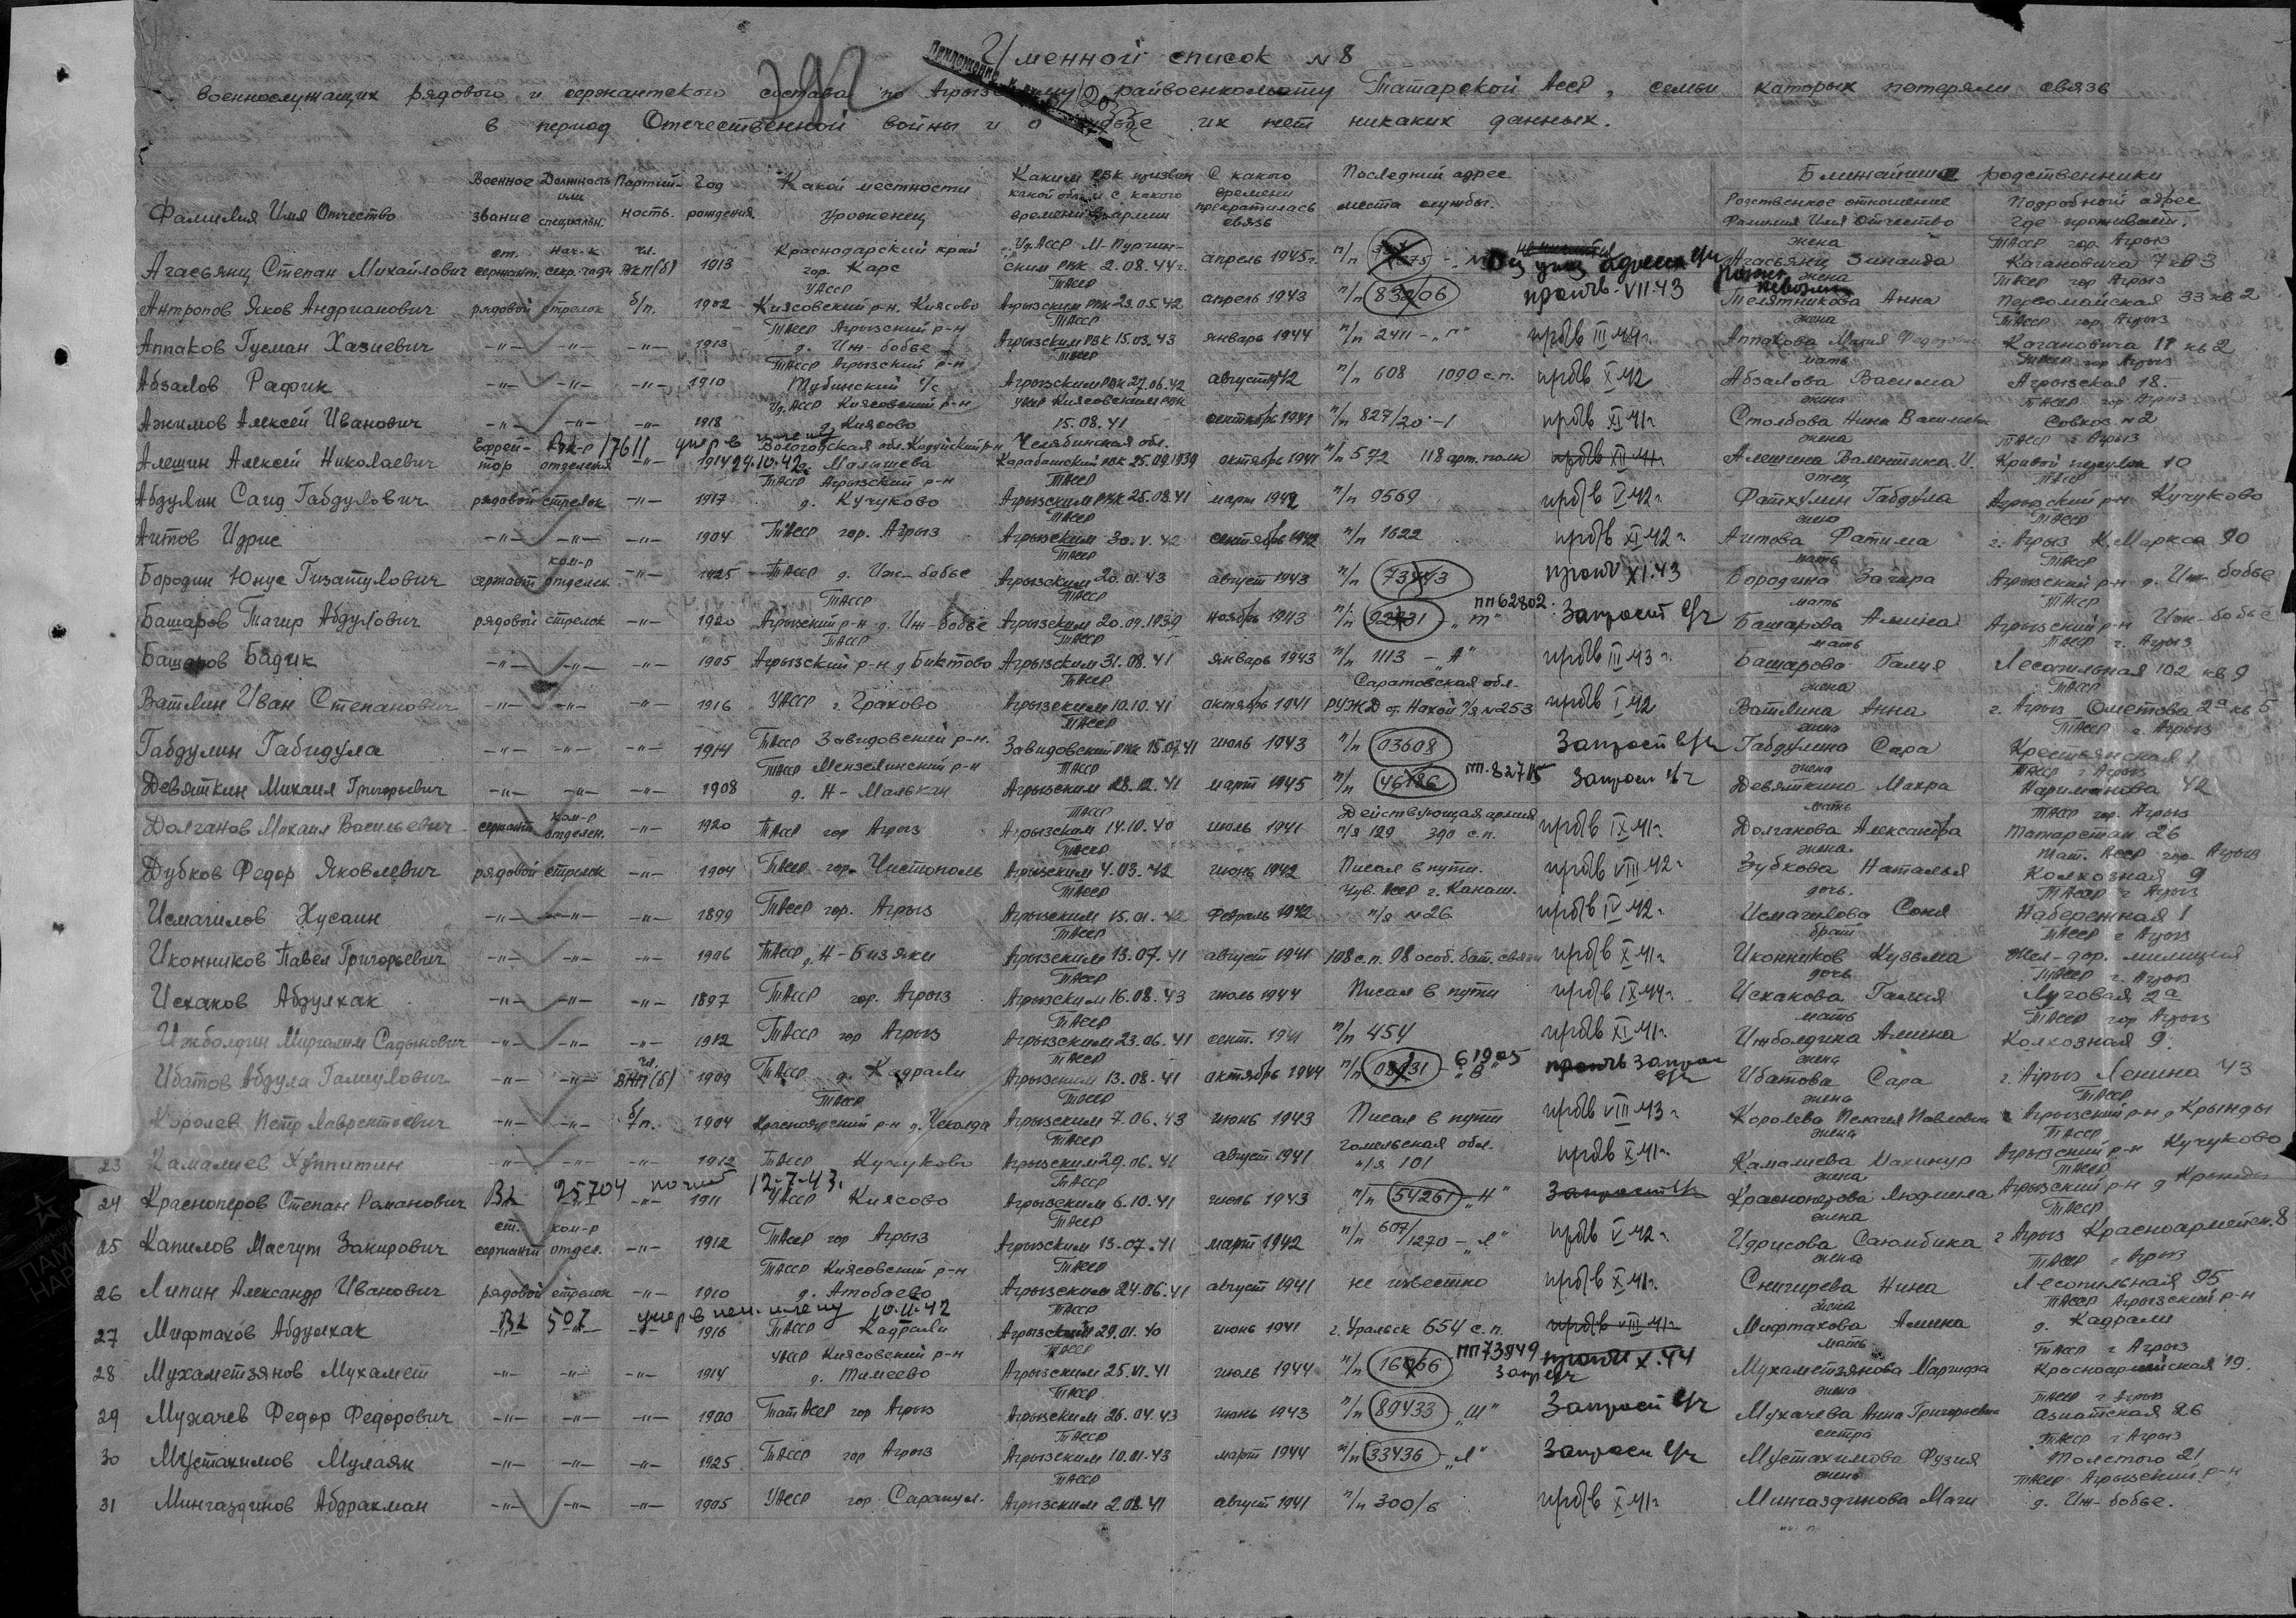 Именной список №8
военнослужащих рядового и сержантского состава по Агрызскому райвоенкомату Татарской АССР, семьи каторых потеряли связь
в период Отечественной войны и о судьбе их нет никаких данных.
Фамилия Имя Отчество Военное звание Должность или специальн. Партийность. Год рождения Какой местности уроженец Каким РВК призван какой обл. и с какого времени в армии С какого времени прекратилась связь Последний адрес места службы. Ближайшие родственники
Родственное отношение Фамилия Имя Отчество Подробный адрес где проживает.
Агасьянц Степан Михайлович ст. сержант. нач-к секр. части чл. ВКП(б) 1913 Краснодарский край гор. Карс Уд.АССР М-Пургинским РВК 2.08.44г. апрель 1945г. п/п жена Агасьянц Зинаида ТАССР гор. Агрыз Кагановича 7 кв 3
Антропов Яков Андрианович рядовой стрелок б/п. 1902 УАССР Киясовский р-н. Киясово Агрызским РВК 23.05.42 апрель 1943 п/п 83906 пропвъ-VII.43 жена Телятникова Анна ТАССР гор Агрыз Первомайская 33 кв 2
Аппаков Гусман Хазиевич -"- -"- -"- 1913 ТАССР Агрызский р-н д. Иж-бобье ТАССР Агрызским РВК 15.03.43 январь 1944 п/п 2411 - "П" пр/б в III 44г. жена Аппакова Мария ТАССР гор. Агрыз Кагановича 17 кв 2
Абзалов Рафик -"- -"- -"- 1910 ТАССР Агрызский р-н Тубинский с/с ТАССР Агрызским РВК 27.06.42 август 1942 п/п 608 1090 с.п. пр/б в X 42 мать Абзалова Васима ТАССР гор Агрыз Агрызская 18.
Ажимов Алексей Иванович -"- -"- -"- 1918 Уд.АССР Киясовский р-н д. Киясово УАССР Киясовским РВК 15.08.41 сентябрь 1941 п/п 827/20-1 пр/б в XI 41г жена Столбова Нина Васильевна ТАССР гор Агрыз Совхоз №2
Алешин Алексей Николаевич Ефрейтор Ком-р отделения 17611 умер в плену 24.10.42 -"- 1914 Вологодская обл. Кадуйский р-н д. Малышева Челябинская обл. Карабашский РВК 25.09.1939 октябрь 1941 п/п 572 118 арт. полк пр/б в XII 41г жена Алешина Валентина.И. ТАССР г Агрыз Кривой переулок 10
Абдулин Саид Габдулович рядовой стрелок -"- 1917 ТАССР Агрызский р-н д. Кучуково ТАССР Агрызским РВК 25.08.41 март 1942 п/п 9569 пр/б в V 42г. отец Фатхулин Габдула ТАССР Агрызский р-н Кучуково
Аитов Идрис -"- -"- -"- 1904 ТАССР гор. Агрыз ТАССР Агрызским 30.V.42 сентябрь 1942 п/п 1622 пр/б в XI 42г. жена Аитова Фатима ТАССР г. Агрыз К. Маркса 90
Бородин Юнус Гизатулович сержант ком-р отделен. -"- 1925 ТАССР д. Иж-бобье ТАССР Агрызским 20.01.43 август 1943 п/п 73443 пропв XI.43 мать Бородина Загира ТАССР Агрызский р-н д. Иж-бобье
Башаров Тагир Абдулович рядовой стрелок -"- 1920 ТАССР Агрызский р-н д. Иж-бобье ТАССР Агрызским 20.09.1939 ноябрь 1943 п/п 92431 - "т" пп 62802. Запросит с/ч мать Башарова Амина ТАССР Агрызский р-н Иж-бобье
Башаров Бадик -"- -"- -"- 1905 ТАССР Агрызский р-н д Биктово ТАССР Агрызским 31.08.41 январь 1943 п/п 1113 - "А" пр/б в III 43г. мать Башарова Галия ТАССР г. Агрыз Лесопильная 102 кв 9
Ватлин Иван Степанович -"- -"- -"- 1916 УАССР г. Грахово ТАССР Агрызским 10.10.41 октябрь 1941 Саратовская обл. РУЖД ст. Нахой п/я №253 пр/б в I 42 жена Ватлина Анна ТАССР г. Агрыз Ометова 2а кв 5
Габдулин Габидула -"- -"- -"- 1914 ТАССР Завидовский р-н. ТАССР Завидовский РВК 15.07.41 июль 1943 п/п 03608 Запросит с/ч жена Габдулина Сара ТАССР г. Агрыз Крестьянская 1
Девяткин Михаил Григорьевич -"- -"- -"- 1908 ТАССР Мензелинский р-н д. Н-Малькан ТАССР Агрызским 28.12.41 март 1945 п/п 46786 пп.82715 Запросит с/ч жена Девяткина Махра ТАССР г Агрыз Нариманова 42
Долганов Михаил Васильевич сержант ком-р отделен. -"- 1920 ТАССР гор Агрыз ТАССР Агрызским 14.10.40 июль 1941 Действующая армия п/я 129 390 с.п. пр/б в IX 41г. мать Долганова Александра ТАССР гор. Агрыз Татарстан 26
Дубков Федор Яковлевич рядовой стрелок -"- 1904 ТАССР гор. Чистополь ТАССР Агрызским 4.03.42 июнь 1942 Писал в пути. пр/б в VIII 42г жена. Зубкова Наталья Тат. АССР гор Агрыз Колхозная 9
Исмагилов Хусаин -"- -"- -"- 1899 ТАССР гор. Агрыз ТАССР Агрызским 15.01.42 февраль 1942 Чув. АССР г. Канаш. п/я №26 пр/б в IV 42г. дочь. Исмагилова Соня ТАССР г Агрыз Набережная 1
Иконников Павел Григорьевич -"- -"- -"- 1906 ТАССР д. Н-Бизяки ТАССР Агрызским 13.07.41 август 1941 108 с.п. 98 особ. бат. связи пр/б в X 41г брат Иконников Кузьма ТАССР г Агрыз Жел-дор. милиция
Исхаков Абдулхак -"- -"- -"- 1897 ТАССР гор. Агрыз ТАССР Агрызским 16.08.43 июль 1944 Писал в пути пр/б в IX 44г. дочь Исхакова Галия ТАССР г. Агрыз Луговая 2а
Ижболдин Миргалим Садыкович -"- -"- -"- 1912 ТАССР гор Агрыз ТАССР Агрызским 23.06.41 сент. 1941 п/п 454 пр/б в XI 41г. мать Ижболдина Амина ТАССР гор Агрыз Колхозная 9.
Ибатов Абдула Галиулович -"- -"- чл. ВКП(б) 1909 ТАССР д. Кадрали ТАССР Агрызским 13.08.41 октябрь 1944 п/п 08431 - "В" 61905 пропвъ Запрос с/ч жена Ибатова Сара г. Агрыз Ленина 43
Королев Петр Лаврентьевич -"- -"- б/п. 1904 ТАССР Красноярский р-н д. Чекалда ТАССР Агрызским 7.06.43 июнь 1943 Писал в пути пр/б в VIII 43г. жена Королева Пелагея Павловна ТАССР Агрызский р-н д Крынды
23 Камалиев -"- -"- -"- 1912 ТАССР Кучуково ТАССР Агрызским 29.06.41 август 1941 Гомельская обл. п/я 101 пр/б в X 41г. жена Камалиева Махинур ТАССР Агрызский р-н Кучуково
24 Красноперов Степан Романович ВХ 25704 погиб 12-7-43. -"- 1911 УАССР Киясово ТАССР Агрызским 6.10.41 июль 1943 п/п 54261 - "Н" Запросит с/ч жена Красноперова Людмила ТАССР Агрызский р-н д Крынды
25 Капилов Масгут Закирович ст. сержант ком-р отдел. -"- 1912 ТАССР гор Агрыз ТАССР Агрызским 13.07.41 март 1942 п/п 607/1270 - "Л" пр/б в V 42г. жена Идрисова Саюмбика ТАССР г Агрыз Красноармейск. 8
26 Липин Александр Иванович рядовой стрелок -"- 1910 ТАССР Киясовский р-н д. Атабаево ТАССР Агрызским 24.06.41 август 1941 не известно пр/б в X 41г. жена Снигирева Нина ТАССР г Агрыз Лесопильная 95
27 Мифтахов Абдулхак ВХ 507 умер в нем. плену 10.11.42 -"- 1916 ТАССР Кадрали ТАССР Агрызский 29.01.40 июнь 1941 г. Уральск 654 с.п. пр/б в VIII 41г жена Мифтахова Амина ТАССР Агрызский р-н д. Кадрали
28 Мухаметзянов Мухамет -"- -"- -"- 1914 УАССР Киясовский р-н д. Тимеево ТАССР Агрызским 25.VI.41 июль 1944 п/п 16066 пп73949 Запр с/ч X.44 мать Мухаметзянова Маргифа ТАССР г Агрыз Красноармейская 19.
29 Мухачев Федор Федорович -"- -"- -"- 1900 Тат АССР гор Агрыз ТАССР Агрызским 26.04.43 июнь 1943 п/п 89433 - "Ш" Запросит с/ч жена Мухачева Анна Григорьевна ТАССР г Агрыз Азиатская 26
30 Мустакимов Мулаян -"- -"- -"- 1925 ТАССР гор Агрыз ТАССР Агрызским 10.01.43 март 1944 п/п 33436 - "Л" Запросит с/ч сестра Мустакимова Фузия ТАССР г Агрыз Толстого 21
31 Мингаздинов Абдрахман -"- -"- -"- 1905 УАССР гор. Сарапул. ТАССР Агрызским 2.08.41 август 1941 п/п 300/6 пр/б в X 41г жена Мингаздинова Маги ТАССР Агрызский р-н д. Иж-бобье.